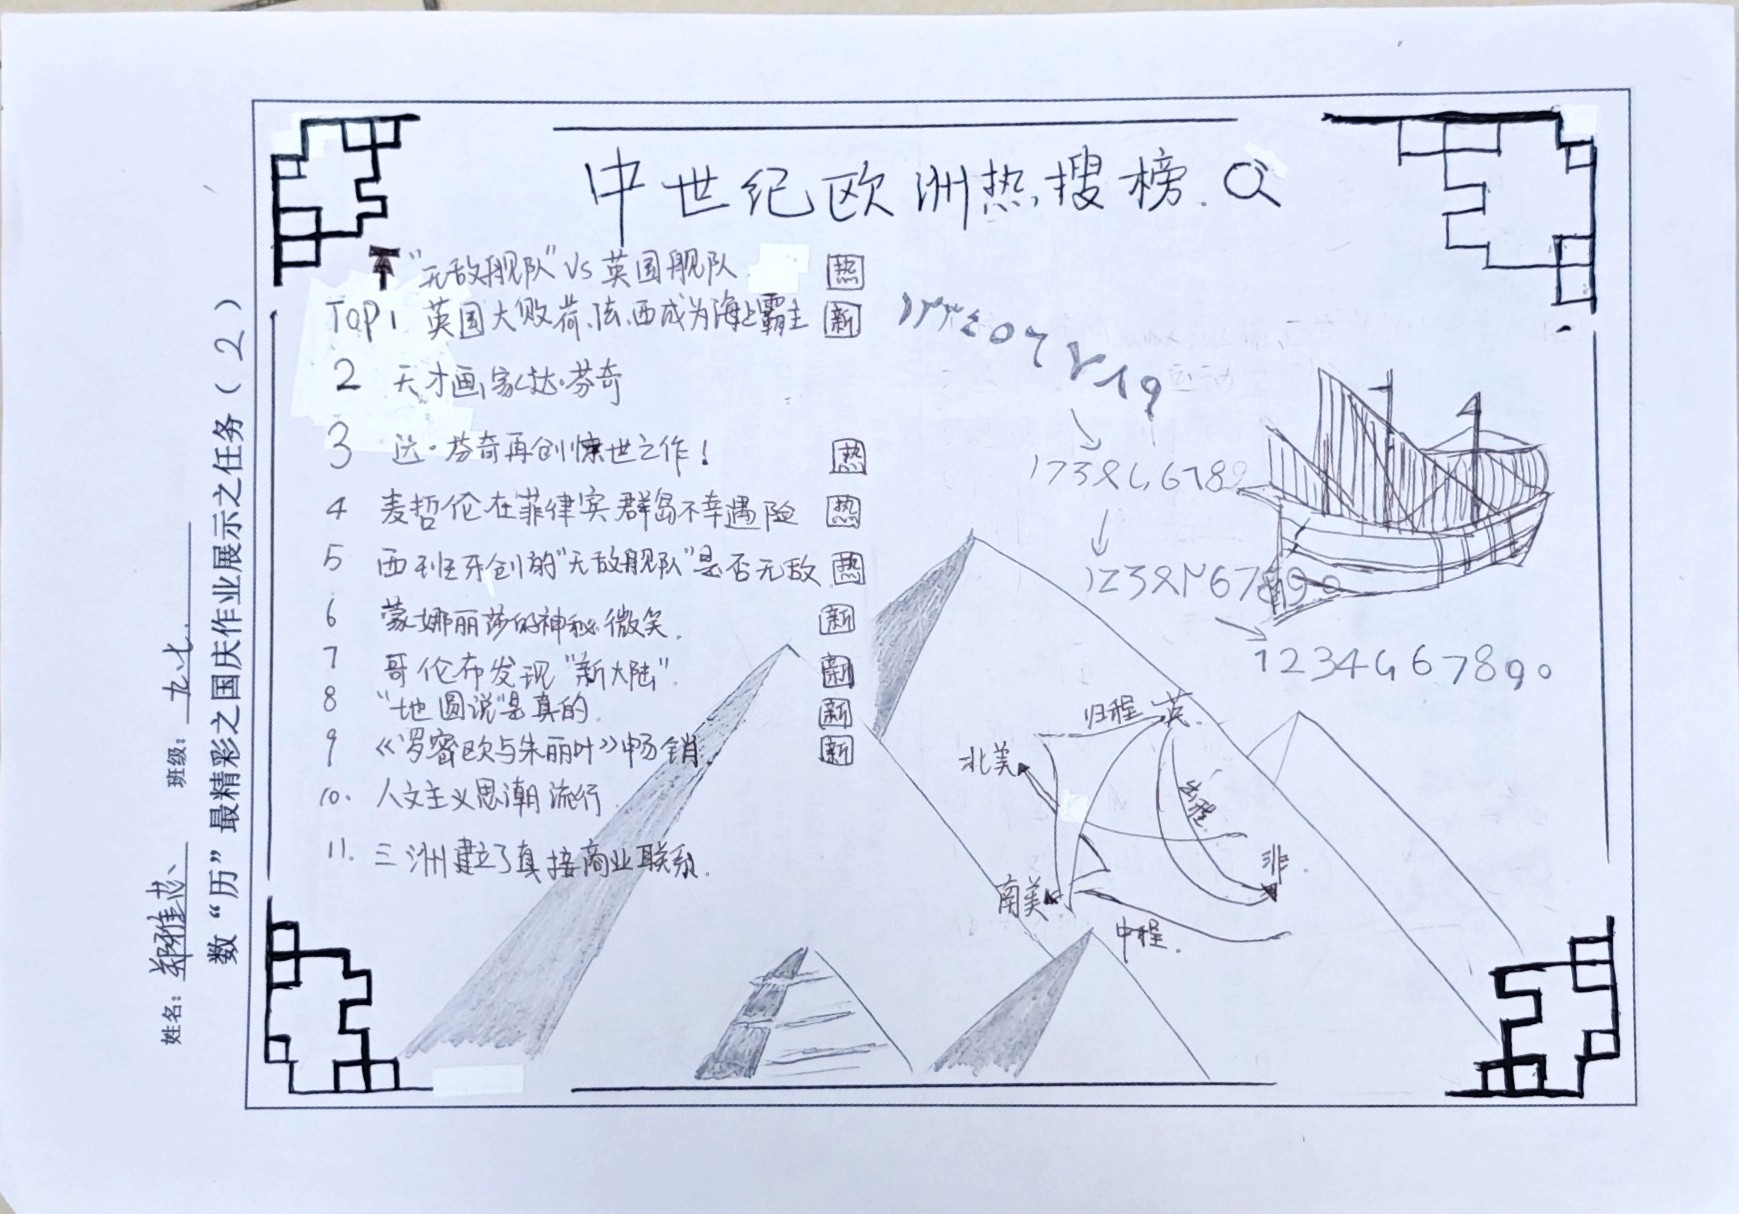 中世纪欧洲热搜榜.
"无敌舰队"VS英国舰队 热
TOP1 英国大败荷、法、西成为海上霸主 新
2 天才画家达·芬奇
3 达·芬奇再创惊世之作! 热
4 麦哲伦在菲律宾群岛不幸遇险 热
5 西班牙创的"无敌舰队"是否无敌 热
6 蒙娜丽莎的神秘微笑. 新
7 哥伦布发现"新大陆". 新
8 "地圆说"是真的. 新
9 《罗密欧与朱丽叶》畅销. 新
10. 人文主义思潮流行.
11. 三洲建立了直接商业联系.
1234467890
归程
英.
北美
出程.
非.
南美
中程.
数“历”最精彩之国庆作业展示之任务（2）
姓名：郑雅芯、 班级：九七.